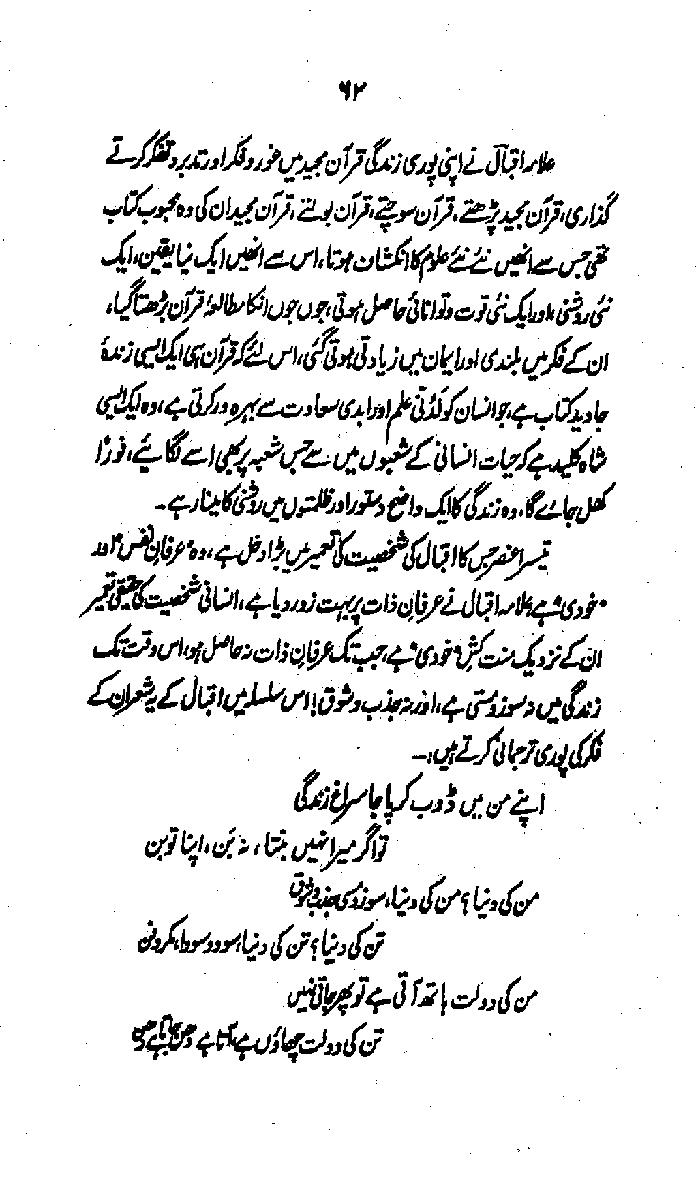 ۶۲
علامہ اقبال نے اپنی پوری زندگی قرآن مجید میں غور و فکر اور تدبر و تفکر کرتے
گذاری، قرآن مجید پڑھتے، قرآن سوچتے، قرآن بولتے، قرآن مجید ان کی وہ محبوب کتاب
تھی جس سے انھیں نئے نئے علوم کا انکشاف ہوتا، اس سے انھیں ایک نیا یقین، ایک
نئی روشنی، اور ایک نئی قوت و توانائی حاصل ہوتی، جوں جوں انکا مطالعۂ قرآن بڑھتا گیا،
ان کے فکر میں بلندی اور ایمان میں زیادتی ہوتی گئی، اس لئے کہ قرآن ہی ایک ایسی زندۂ
جاوید کتاب ہے، جو انسان کو لدنی علم اور ابدی سعادت سے بہرہ ور کرتی ہے، وہ ایک ایسی
شاہ کلید ہے کہ حیات انسانی کے شعبوں میں سے جس شعبہ پر بھی اسے لگائیے، فوراً
کھل جائے گا، وہ زندگی کا ایک واضح دستور اور ظلمتوں میں روشنی کا مینار ہے۔
تیسرا عنصر جس کا اقبال کی شخصیت کی تعمیر میں بڑا دخل ہے، وہ "عرفانِ نفس" اور
"خودی" ہے، علامہ اقبال نے عرفانِ ذات پر بہت زور دیا ہے، انسانی شخصیت کی حقیقی تعمیر
ان کے نزدیک منت کش "خودی" ہے، جب تک عرفانِ ذات نہ حاصل ہو، اس وقت تک
زندگی میں نہ سوز و مستی ہے، اور نہ جذب و شوق! اس سلسلہ میں اقبال کے یہ شعر ان کے
فکر کی پوری ترجمانی کرتے ہیں:۔
اپنے من میں ڈوب کر پا جا سراغ زندگی
تو اگر میرا نہیں بنتا، نہ بن، اپنا تو بن
من کی دنیا؟ من کی دنیا، سوز و مستی جذب و شوق
تن کی دنیا؟ تن کی دنیا، سود و سودا، مکر و فن
من کی دولت ہاتھ آتی ہے تو پھر جاتی نہیں
تن کی دولت چھاؤں ہے، آتا ہے دھن جاتا ہے دھن